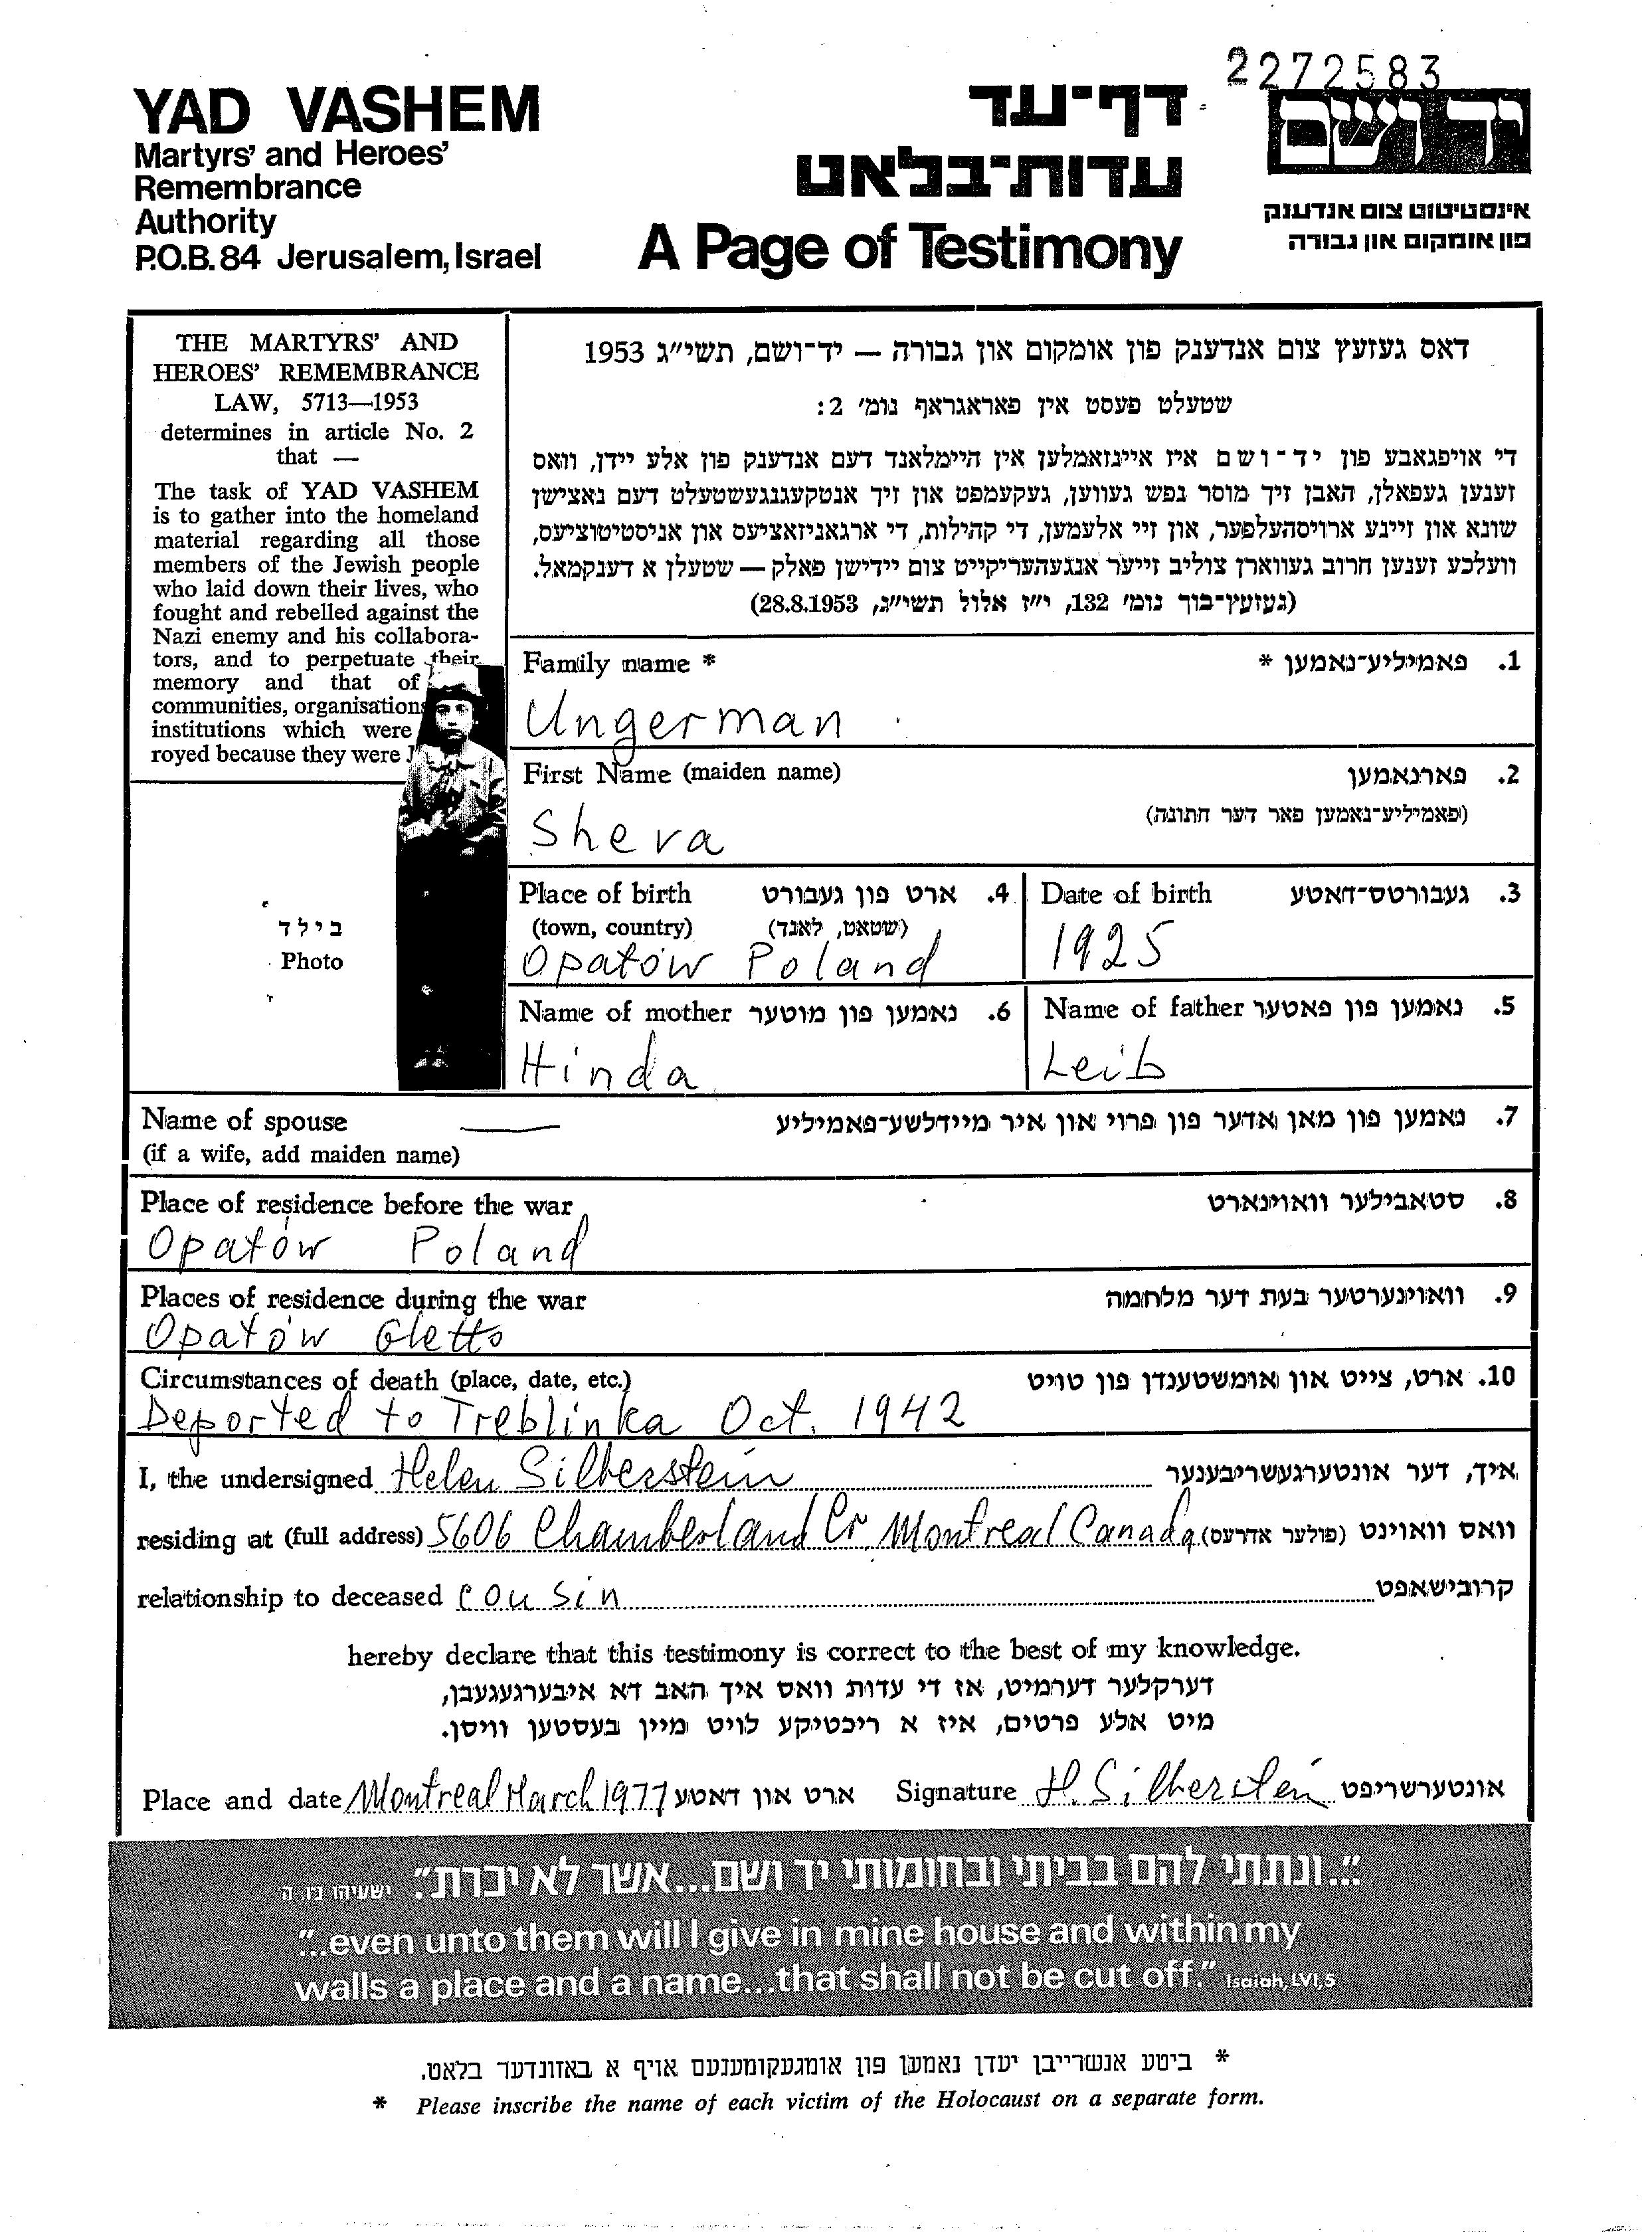 2272583
YAD VASHEM
Martyrs' and Heroes'
Remembrance
Authority
P.O.B. 84 Jerusalem, Israel
דף־עד
עדות־בלאט
A Page of Testimony
יד ושם
אינסטיטוט צום אנדענק
פון אומקום און גבורה
THE MARTYRS' AND
HEROES' REMEMBRANCE
LAW, 5713—1953
determines in article No. 2
that —
The task of YAD VASHEM
is to gather into the homeland
material regarding all those
members of the Jewish people
who laid down their lives, who
fought and rebelled against the
Nazi enemy and his collabora-
tors, and to perpetuate their
memory and that of
communities, organisations
institutions which were
royed because they were J
דאס געזעץ צום אנדענק פון אומקום און גבורה — יד־ושם, תשי״ג 1953
שטעלט פעסט אין פאראגראף נומ׳ 2:
די אויפגאבע פון יד־ושם איז איינזאמלען אין היימלאנד דעם אנדענק פון אלע יידן, וואס
זענען געפאלן, האבן זיך מוסר נפש געווען, געקעמפט און זיך אנטקעגנגעשטעלט דעם נאצישן
שונא און זיינע ארויסהעלפער, און זיי אלעמען, די קהילות, די ארגאניזאציעס און אניסטיטוציעס,
וועלכע זענען חרוב געווארן צוליב זייער אנגעהעריקייט צום יידישן פאלק — שטעלן א דענקמאל.
(געזעץ־בוך נומ׳ 132, י״ז אלול תשי״ג, 28.8.1953)
Family name * פאמיליע־נאמען * .1
Ungerman
First Name (maiden name) פארנאמען .2
(פאמיליע־נאמען פאר דער חתונה)
Sheva
Place of birth ארט פון געבורט .4 Date of birth געבורטס־דאטע .3
(town, country) (שטאט, לאנד)
Opatów Poland 1925
Name of mother נאמען פון מוטער .6 Name of father נאמען פון פאטער .5
Hinda Leib
בילד
Photo
Name of spouse נאמען פון מאן אדער פון פרוי און איר מיידלשע־פאמיליע .7
(if a wife, add maiden name)
Place of residence before the war סטאבילער וואוינארט .8
Opatów Poland
Places of residence during the war וואוינערטער בעת דער מלחמה .9
Opatów Ghetto
Circumstances of death (place, date, etc.) ארט, צייט און אומשטענדן פון טויט .10
Deported to Treblinka Oct. 1942
I, the undersigned Helen Silberstein איך, דער אונטערגעשריבענער
residing at (full address) 5606 Chamberland Cr. Montreal Canada וואס וואוינט (פולער אדרעס)
relationship to deceased cousin קרובישאפט
hereby declare that this testimony is correct to the best of my knowledge.
דערקלער דערמיט, אז די עדות וואס איך האב דא איבערגעגעבן,
מיט אלע פרטים, איז א ריכטיקע לויט מיין בעסטען וויסן.
Place and date Montreal March 1977 ארט און דאטע Signature H. Silberstein אונטערשריפט
"...ונתתי להם בביתי ובחומותי יד ושם...אשר לא יכרת". ישעיהו נו, ה
"...even unto them will I give in mine house and within my
walls a place and a name...that shall not be cut off." Isaiah, LVI, 5
* ביטע אנשרייבן יעדן נאמען פון אומגעקומענעם אויף א באזונדער בלאט.
* Please inscribe the name of each victim of the Holocaust on a separate form.